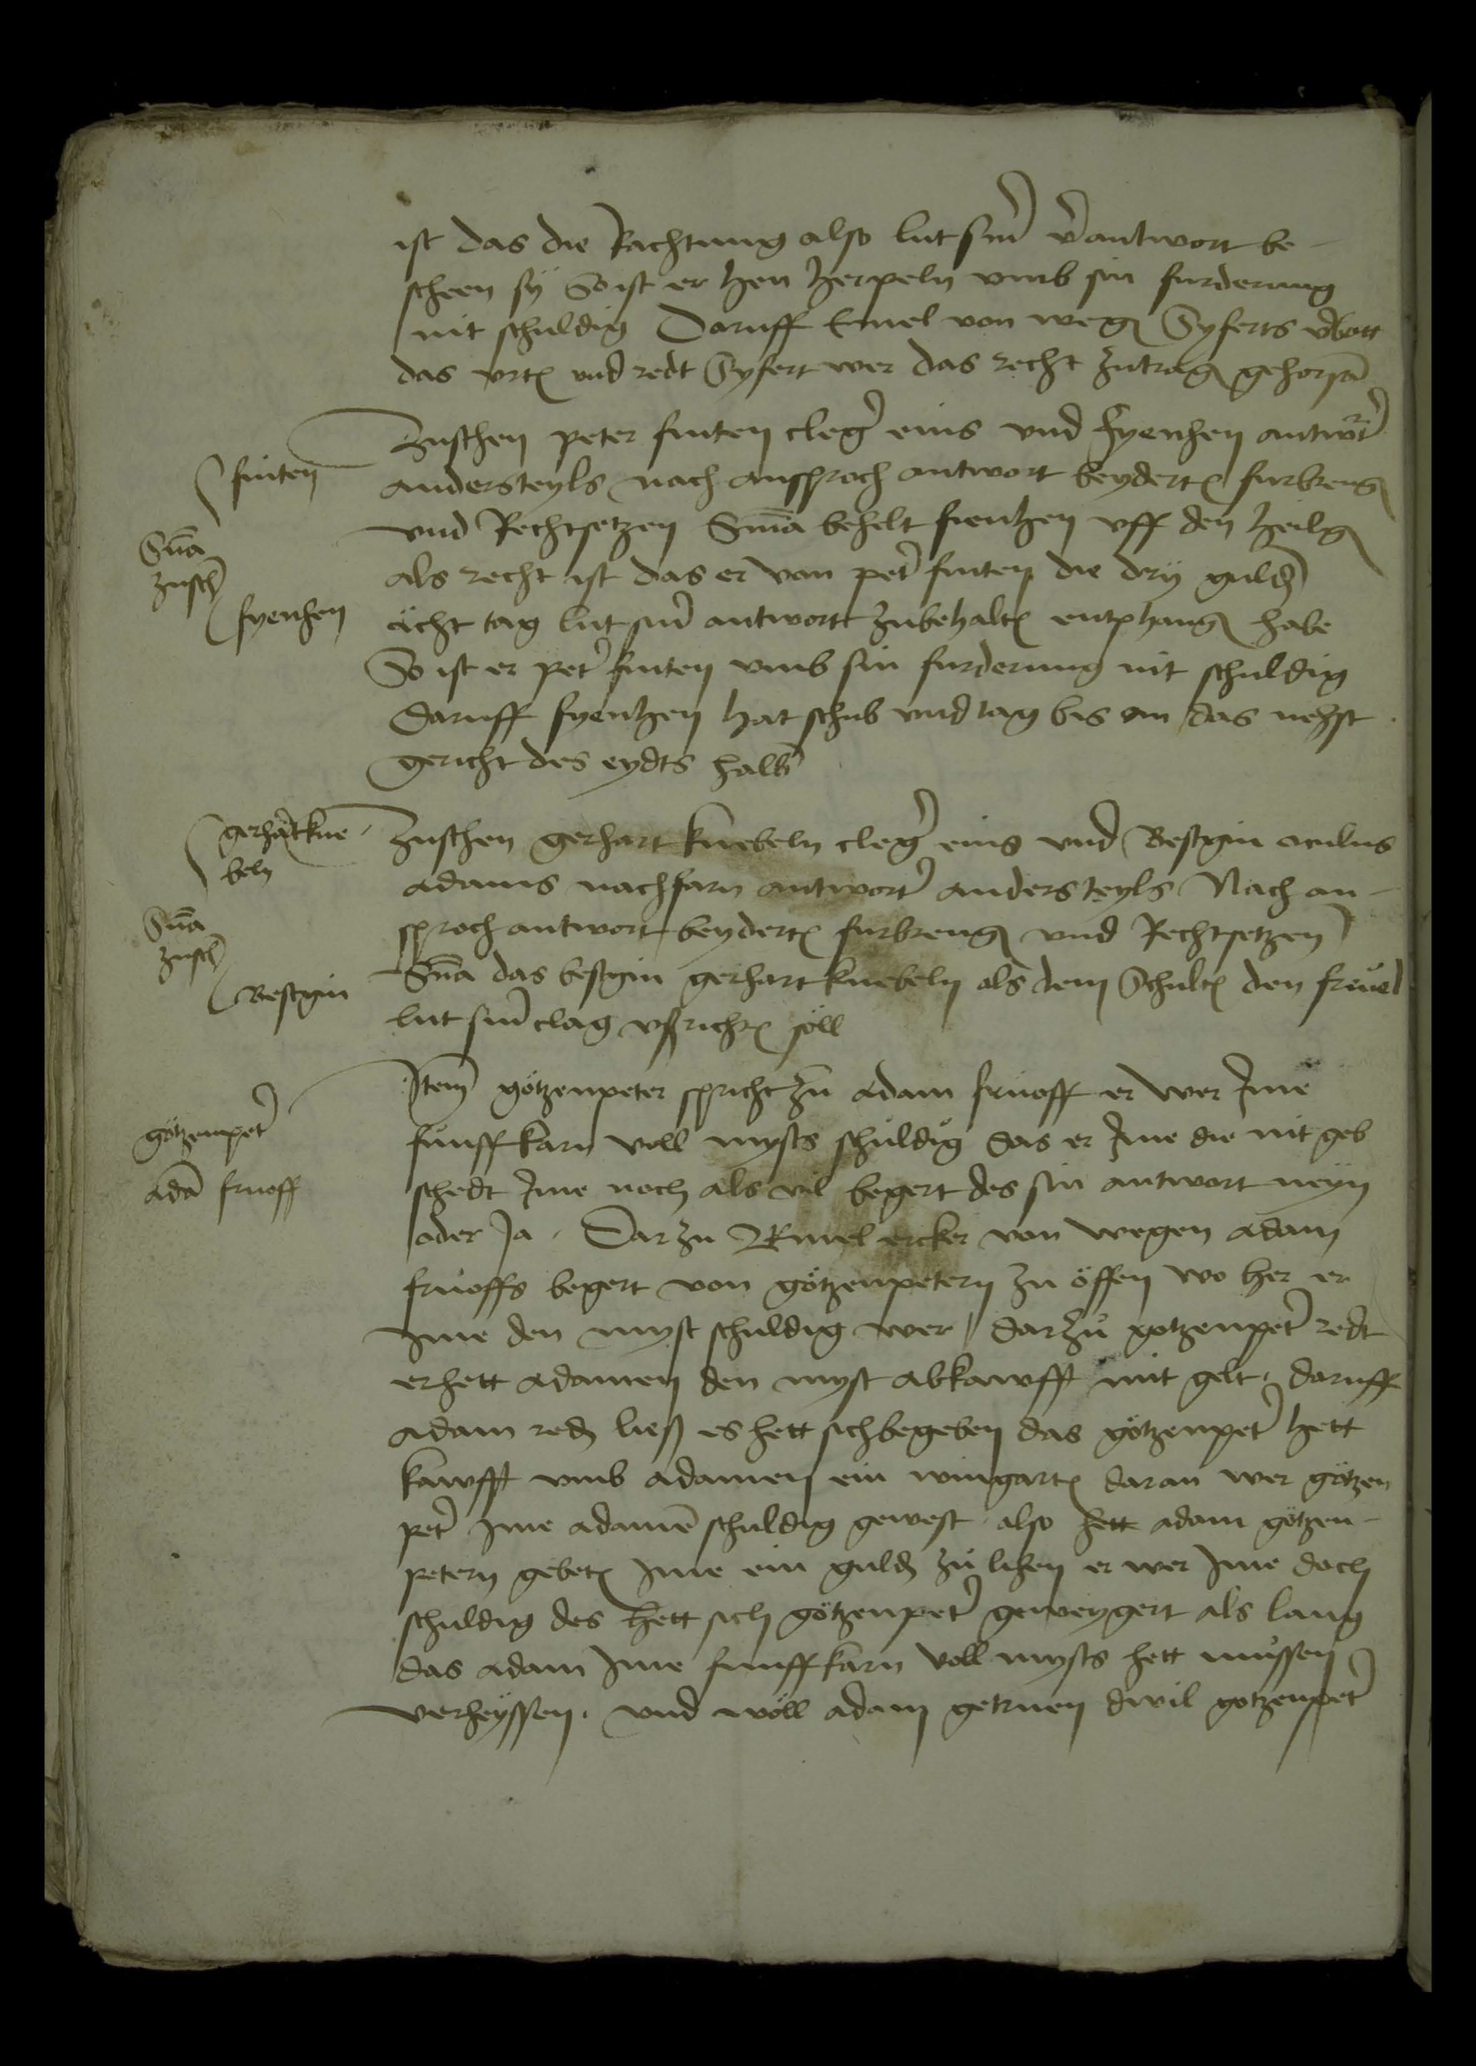 ist das die Rachtung also lut sin̄ v̄antwort be-
scheen sy So ist er hen herpeln vmb sin furderung
nit schuldig Daruff Emel von weg Syferts v̄bott
das vrt vnd redt Syfert wer das recht zutrag gehorsā
Zuschen peter finten cleḡ eins vnd fyenhen antwort̄
andersteyls nach ansproch antwort beydert furbreng
und Rechtsetzen Snīa behelt fienhen vff den heilg
als recht ist das er von pet̄ finten die dry guld
acht tag lut sin̄ antwort zubehalt entphang habe
So ist er pet̄ finten vmb sin furderung nit schuldig
Daruff fyenhen hat schub vnd tag bis an das nehst
gericht des eydts halb
finten
Snīa
zusch
fyenhen
Zuschen gerhart knebeln cleḡ eins und Bestgin
adams nachfarn antwort̄ andersteyls Nach an-
sproch antwort beydert furbreng vnd Rechtsetzen
Snīa das bestgin gerhart knebeln als dem Schult den freuel
lut sin̄ clag vßricht söll
gerhart kne-
beln
Snīa
zusch
Bestgin
Item götzenpeter spricht zu adam fruoff er wer Ime
funff karn voll mysts schuldig das er Ime die nit geb
schedt Ime noch als vil begert des sin antwort neyn
oder Ja. Dar zu Emel ercker von wegen adam
fruoffs begert von götzenpetern zu öffen wo her er
Ime den myst schuldig wer darzu gotzenpet̄ redt
er hett adamen den myst abkawfft mit gelt. daruff
adam red ließ es hett sich begeben das götzenpet̄ hett
kawfft vmb adamen ein wingart daran wer götzen
pet̄ Ime adamē schuldig gewest also hett adam götzen-
petern gebet Ime ein guld zu lihen er wer Ime doch
schuldig des hett sich götzenpet̄ geweygert als lang
das adam Ime funff karn voll mysts hett mussen
verheyssen. vnd wöll adam getruen dwil gotzenpet̄
götzenpet̄
adā fruoff